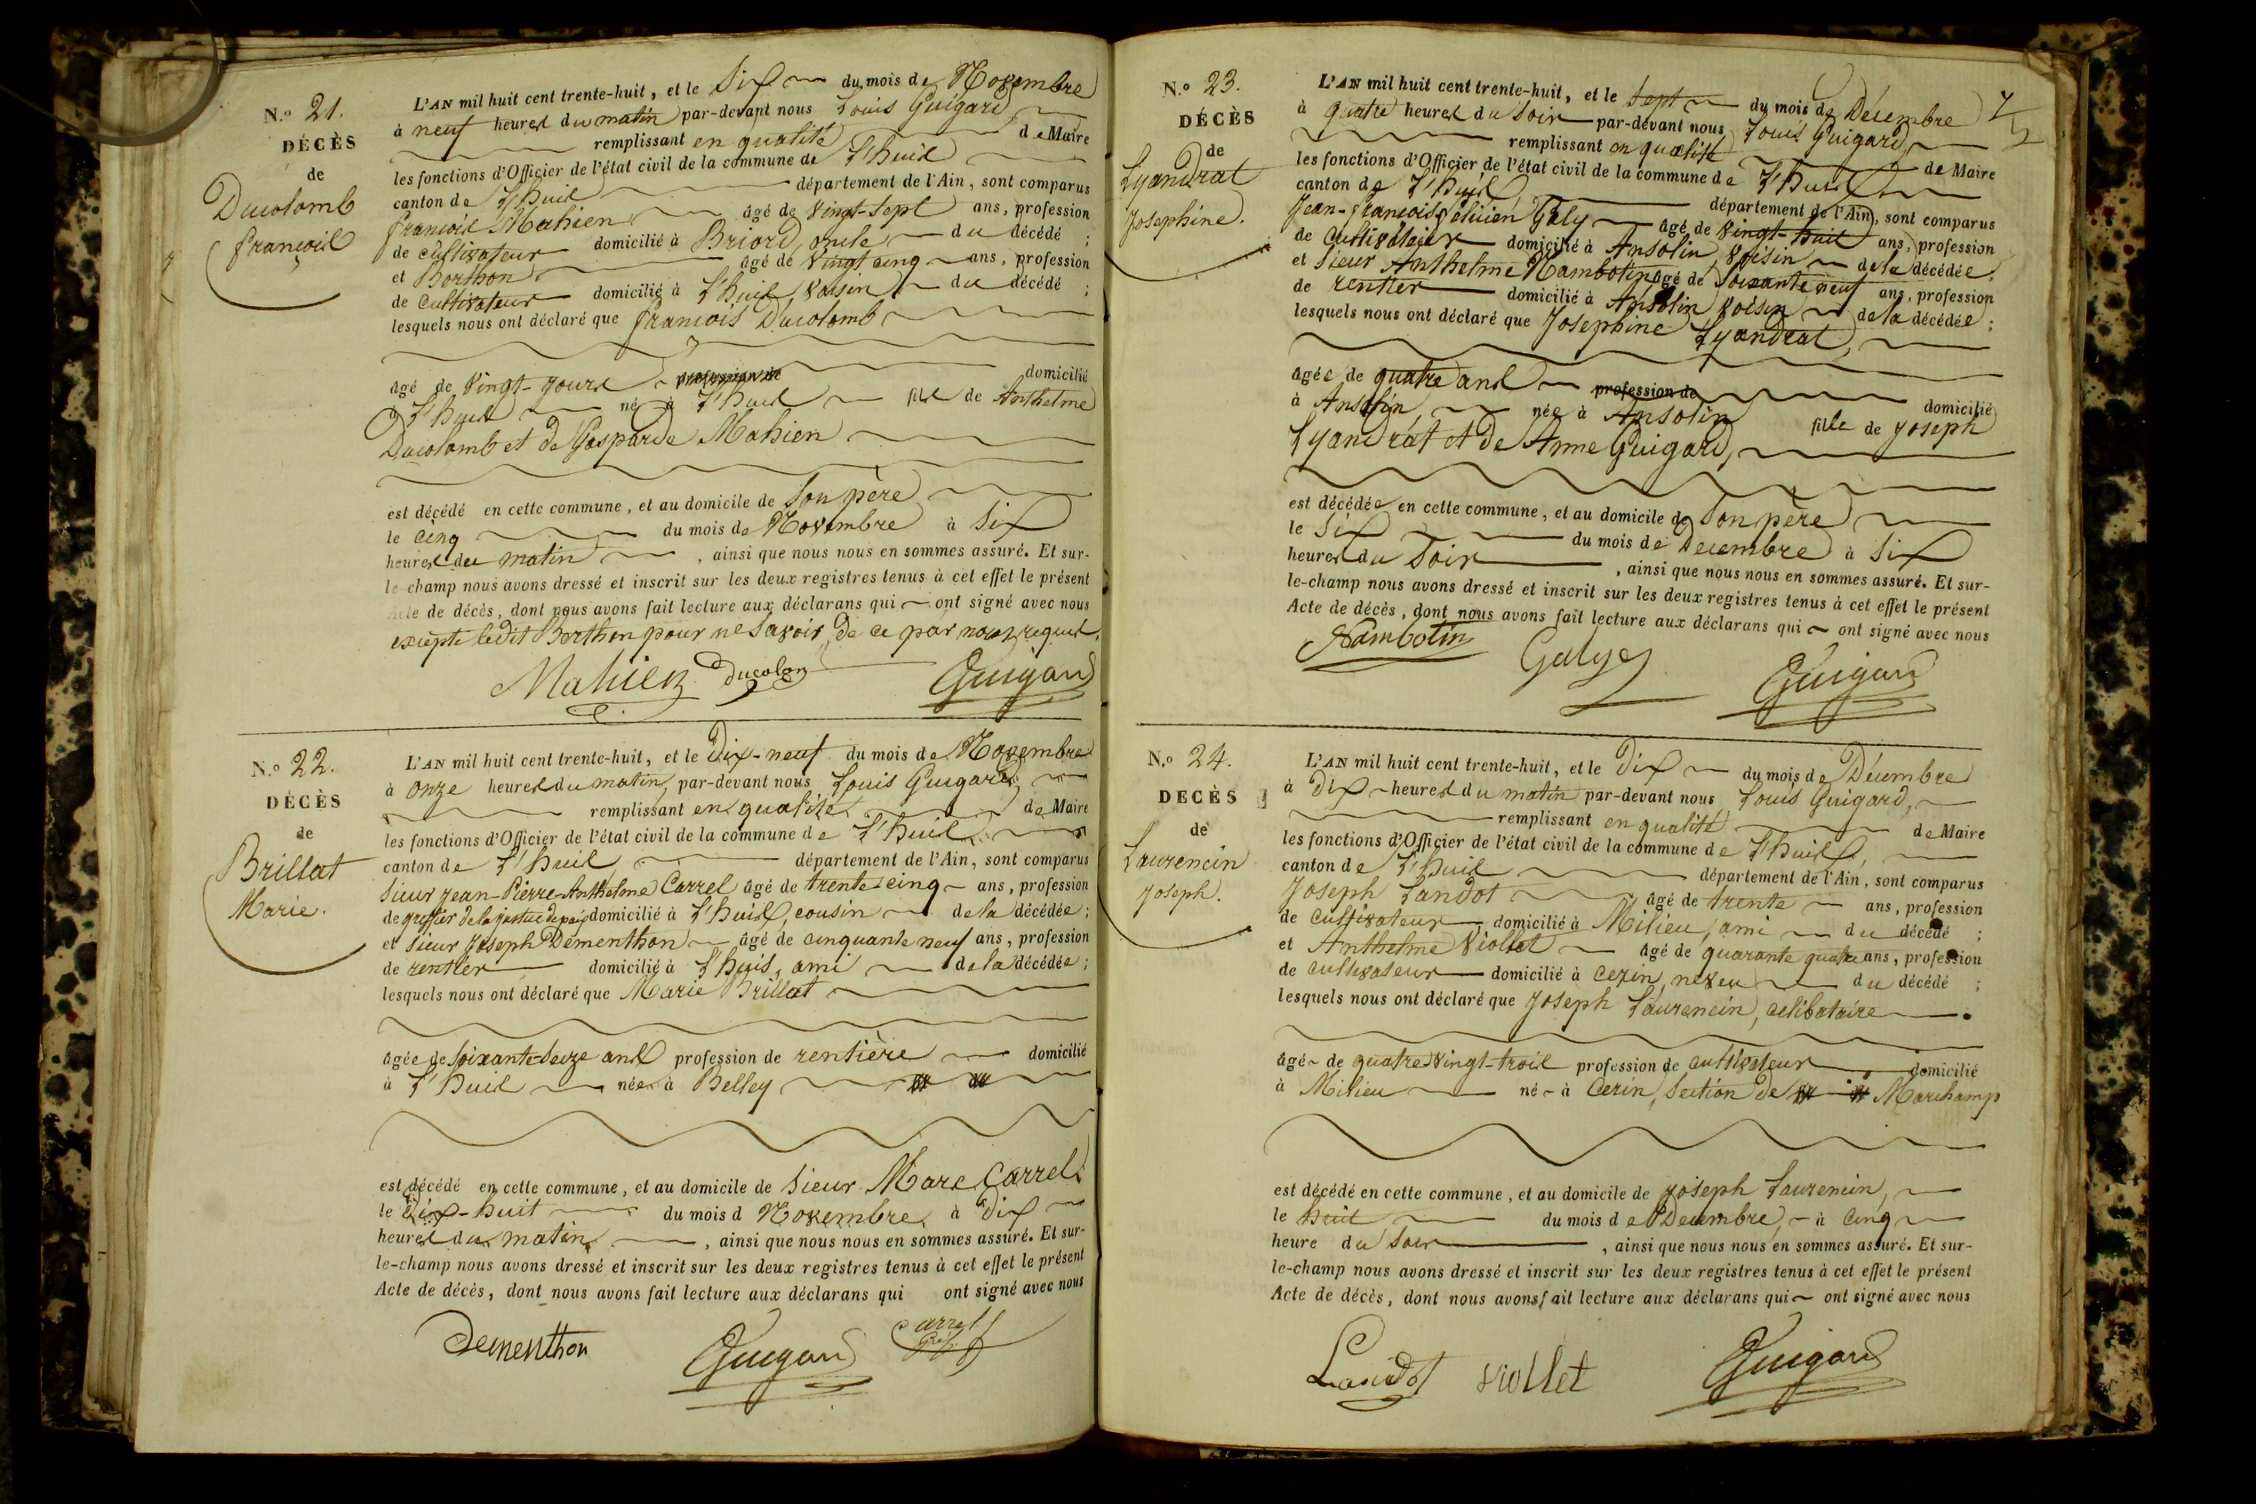 N.º 21.
DÉCÈS
de
Ducolomb
françois
L'AN mil huit cent trente-huit, et le Six du mois de Novembre
à neuf heures du matin par-devant nous Louis Guigard,
remplissant en qualité de Maire
les fonctions d'Officier de l'état civil de la commune de L'huis
canton de L'huis département de l'Ain, sont comparus
françois Mahien âgé de vingt-sept ans, profession
de cultivateur domicilié à Briord, oncle du décédé ;
et Borthon âgé de vingt cinq ans, profession
de cultivateur domicilié à L'huis, voisin du décédé ;
lesquels nous ont déclaré que françois Ducolomb
âgé de vingt-jours profession de domicilié
à L'huis né à L'huis fils de Anthelme
Ducolomb et de Gasparde Mahien
est décédé en cette commune, et au domicile de Son père
le cinq du mois de Novembre à Six
heures du matin , ainsi que nous nous en sommes assuré. Et sur-
le-champ nous avons dressé et inscrit sur les deux registres tenus à cet effet le présent
Acte de décès, dont nous avons fait lecture aux déclarans qui ont signé avec nous
excepté ledit Borthon pour ne savoir, de ce par nous requis.
Mahien Ducolon Guigard
N.º 22.
DÉCÈS
de
Brillat
Marie.
L'AN mil huit cent trente-huit, et le Dix-neuf du mois de Novembre
à onze heures du matin, par-devant nous Louis Guigard,
remplissant en qualité de Maire
les fonctions d'Officier de l'état civil de la commune de L'huis
canton de L'huis département de l'Ain, sont comparus
Sieur Jean-Pierre-Anthelme Carrel âgé de trente-cinq ans, profession
de greffier de la justice de paix domicilié à L'huis, cousin de la décédée ;
et Sieur Joseph Dementhon âgé de cinquante neuf ans, profession
de rentier domicilié à L'huis, ami de la décédée ;
lesquels nous ont déclaré que Marie Brillat
âgée de Soixante-Seize ans profession de rentière domicilié
à L'huis née à Belley
est décédé en cette commune, et au domicile de Sieur Marc Carrel
le Dix-huit du mois d Novembre à Dix
heures du matin , ainsi que nous nous en sommes assuré. Et sur-
le-champ nous avons dressé et inscrit sur les deux registres tenus à cet effet le présent
Acte de décès, dont nous avons fait lecture aux déclarans qui ont signé avec nous
Dementhon Guigard Carrel
N.º 23.
DÉCÈS
de
Lyandrat
Josephine.
L'AN mil huit cent trente-huit, et le Sept du mois de Décembre
à quatre heures du Soir par-devant nous Louis Guigard,
remplissant en qualité de Maire
les fonctions d'Officier de l'état civil de la commune de L'huis
canton de L'huis département de l'Ain, sont comparus
Jean-françois félicien Galy âgé de vingt-huit ans, profession
de cultivateur domicilié à Ansolin, voisin de la décédée ;
et Sieur Anthelme Nambotin âgé de Soixante neuf ans, profession
de rentier domicilié à Ansolin voisin de la décédée ;
lesquels nous ont déclaré que Josephine Lyandrat,
âgée de quatre ans profession de domicilié
à Ansolin, née à Ansolin fille de Joseph
Lyandrat et de Anne Guigard,
est décédée en cette commune, et au domicile de Son père
le Six du mois de Décembre à Six
heures du Soir , ainsi que nous nous en sommes assuré. Et sur-
le-champ nous avons dressé et inscrit sur les deux registres tenus à cet effet le présent
Acte de décès, dont nous avons fait lecture aux déclarans qui ont signé avec nous
Nambotin Galy Guigard
N.º 24.
DÉCÈS
de
Laurencin
Joseph.
L'AN mil huit cent trente-huit, et le Dix du mois de Décembre
à Dix heures du matin par-devant nous Louis Guigard,
remplissant en qualité de Maire
les fonctions d'Officier de l'état civil de la commune de L'huis,
canton de L'huis département de l'Ain, sont comparus
Joseph Landot âgé de trente ans, profession
de cultivateur, domicilié à Milieu, ami du décédé ;
et Anthelme Viollet âgé de quarante quatre ans, profession
de cultivateur domicilié à Cerin, neveu du décédé ;
lesquels nous ont déclaré que Joseph Laurencin, célibataire
âgé de quatre-vingt-trois profession de cultivateur domicilié
à Milieu né à Cerin, Section de Marchamp
est décédé en cette commune, et au domicile de Joseph Laurencin,
le huit du mois de Décembre, à cinq
heure du Soir , ainsi que nous nous en sommes assuré. Et sur-
le-champ nous avons dressé et inscrit sur les deux registres tenus à cet effet le présent
Acte de décès, dont nous avons fait lecture aux déclarans qui ont signé avec nous
Landot Viollet Guigard